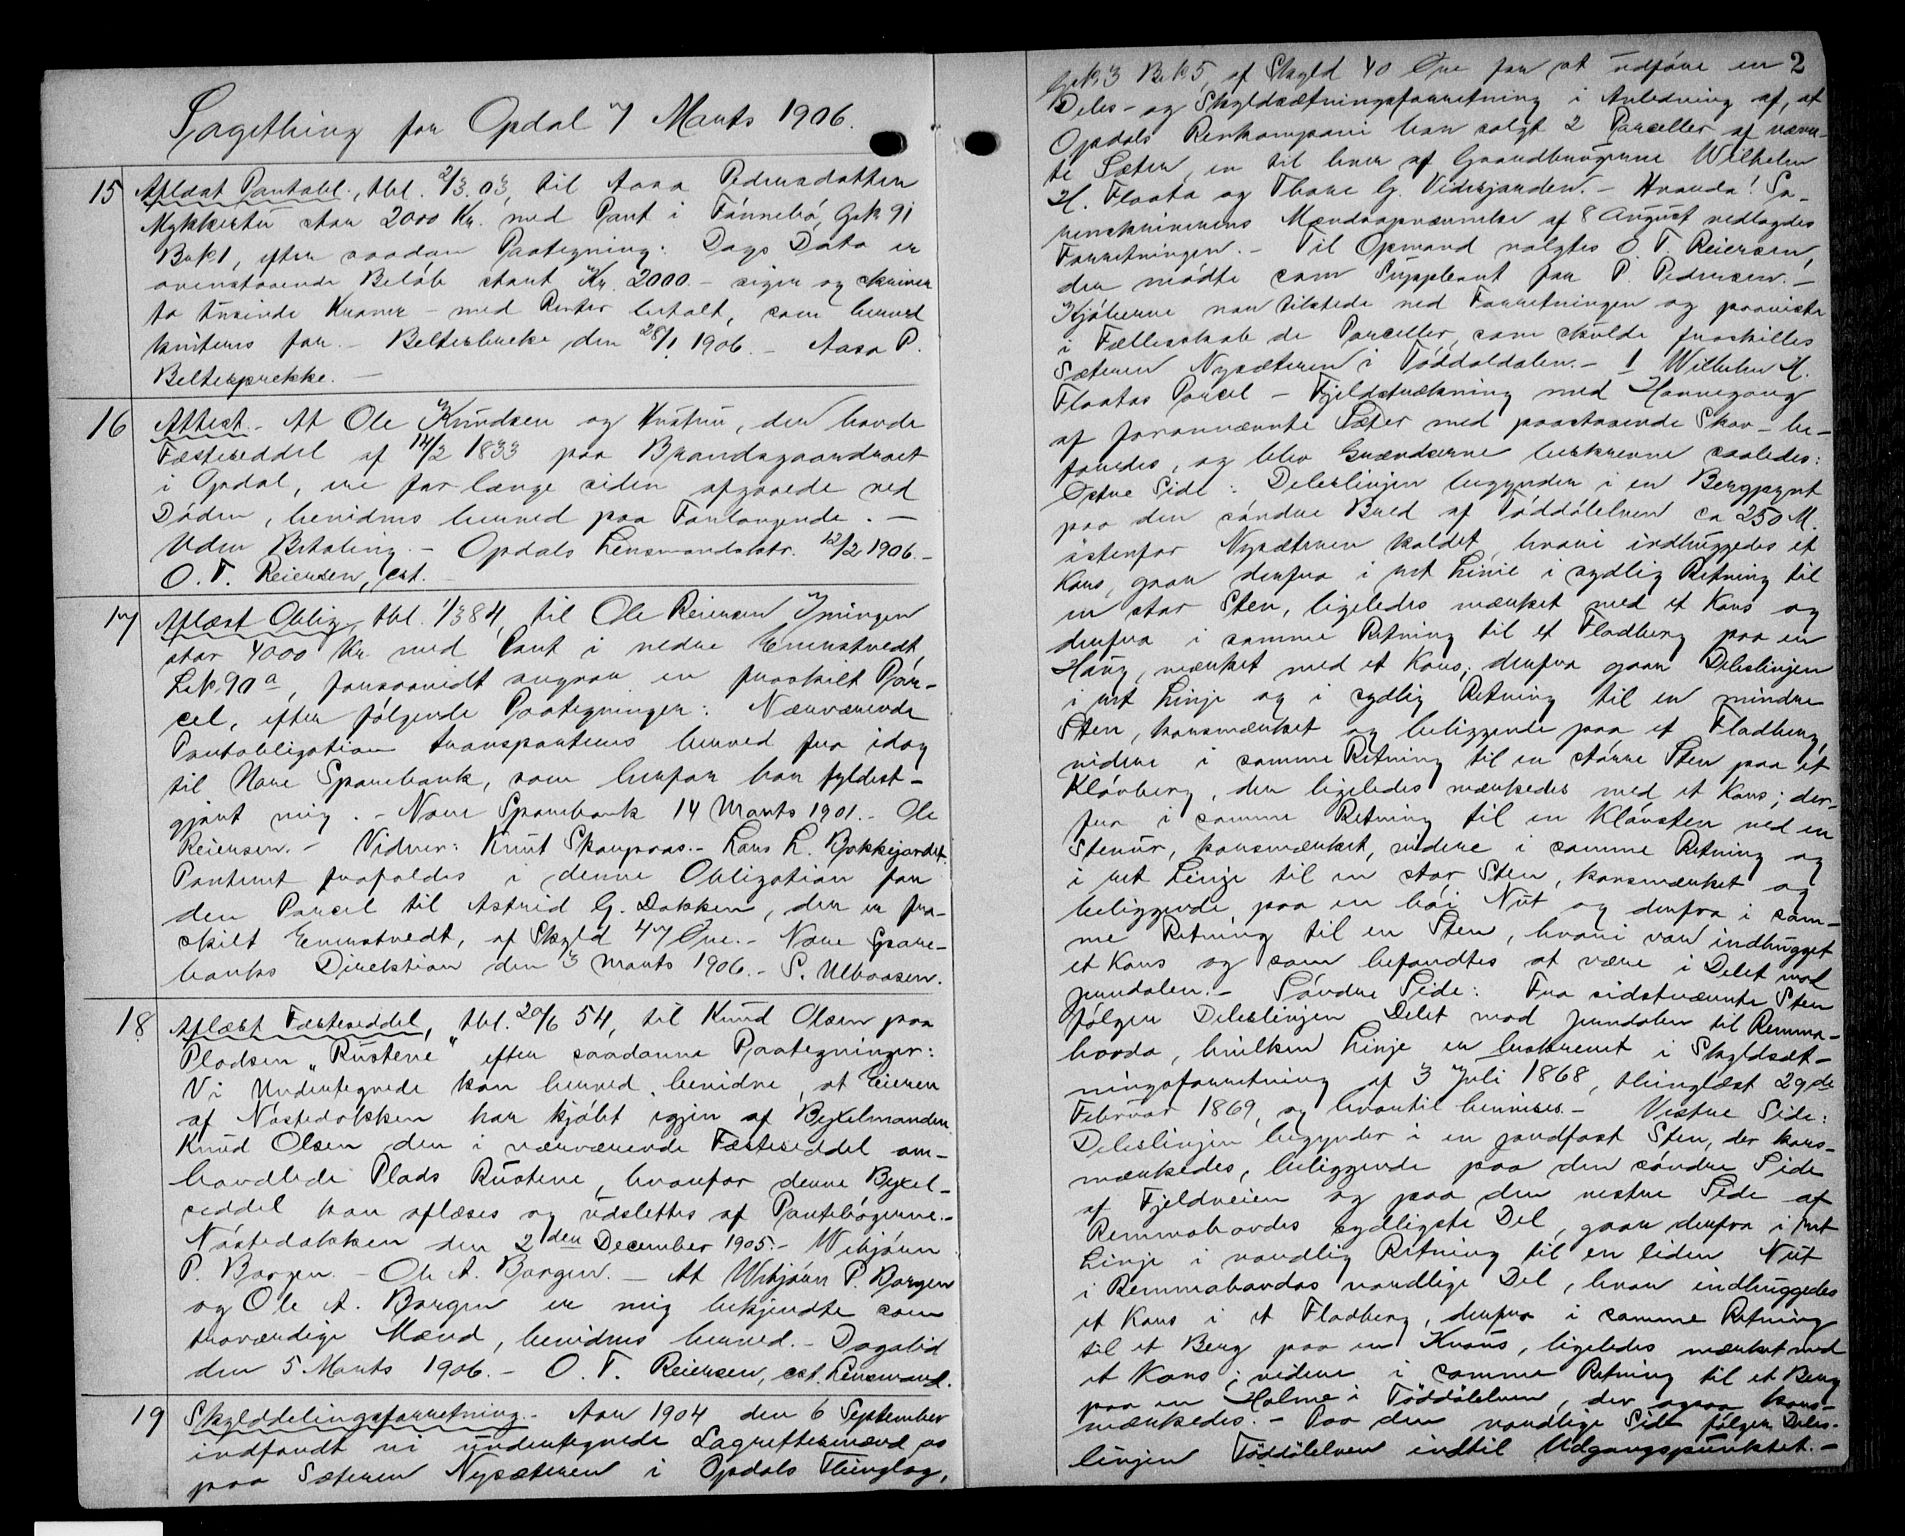 Sagething for Opdal 7 Marts 1906.
15 Aflæst Pantobl., thl. 2/3.03, til Aasa Pedersdatter
Mykkestu stor 2000 Kr. med Pant i Fønnebø, Gsk 91
Bsk 1, efter saadan Paategning: Dags Dato er
ovenstaaende Beløb stort Kr. 2000 - siger og skriver
to tusinde Kroner - med Renter betalt, som herved
kviteres for. - Beltesbrekke den 28/1 1906. - Aasa P.
Beltesprekke. -
16 Attest. - At Ole Knudsen og Hustru, der havde
Fæsteseddel af 14/2 1833 paa Brandsgaardroet
i Opdal, ere for længe siden afgaaede ved
Døden, bevidnes herved paa Forlangende. -
Uden Betaling. - Opdals Lensmandsktr. 12/2 1906. -
O. T. Reiersen, cst.
17 Aflæst Oblig., thl. 1/3 84, til Ole Reiersen
stor 4000 Kr. med Pant i nedre Enerstvedt,
L.k. 90 a, forsaavidt angaar en fraskilt Par-
cel, efter følgende Paategninger: Nærværende
Pantobligation transporteres herved fra idag
til Nore Sparebank, som herfor har fyldest-
gjort mig. - Nore Sparebank 14 Marts 1901. - Ole
Reiersen. - Vidner: Knut Skaupraas. - Lars L. Bakkejordet.
Panteret frafaldes i denne Obligation for
den Parcel til Astrid G. Dokken, der er fra-
skilt Enerstvedt, af Skyld 47 Øre. - Nore Spare-
banks Direktion den 3 Marts 1906. - S. Ulboasen.
18 Aflæst Fæsteseddel, thl. 20/6 54, til Knud Olsen paa
Pladsen "Rustene" efter saadanne Paategninger:
Vi Undertegnede kan herved bevidne, at Eieren
af Nøstedokken har kjøbt igjen af Bygselmanden
Knud Olsen den i nærværende Fæsteseddel om-
handlede Plads Rustene, hvorfor denne Byxel-
seddel kan aflæses og udslettes af Pantebøgerne. -
Nøstedokken den 2den December 1905. - Wibjørn
P. Borgen. - Ole A. Borgen. - At Wibjørn P. Borgen
og Ole A. Borgen er mig bekjendte som
troværdige Mænd, bevidnes herved. - Dagalid
den 5 Marts 1906. - O. T. Reiersen, cst. Lensmand.
19 Skylddelingsforretning. - Aar 1904 den 6 September
indfandt vi undertegnede Lagrettesmænd os
paa Sæteren Nysæteren i Opdals Thinglag,
2
Gsk. 3 Bsk 5, af Skyld 40 Øre for at udføre en
Deles- og Skyldsætningsforretning i Anledning af, at
Opdals Renkompani har solgt 2 Parceller af nævn-
te Sæter, en til hver af Gaardbrugerne Wilhelm
H. Flaata og Thore G. Vidersjorden. - Hr. Sorenskriverens
Mændsopnævnelse af 8 August vedlagdes
Forretningen. - Til Opmand valgtes O. T. Reiersen,
der mødte som Suppleant for P. Pedersen. -
Kjøberne var tilstede ved Forretningen og paaviste
i Fællesskab de Parceller, som skulde fraskilles
Sæteren Nysæteren i Tøddøldalen. - 1 Wilhelm H.
Flaatas Parcel - Fjeldstrækning med Havnegang
af forannævnte Sæter med paastaaende Skov - be-
faredes, og blev Grændserne beskrevne saaledes:
Østre Side: Deleslinjen begynder i en Bergpynt
paa den søndre Bred af Tøddølelven ca 250 M.
østenfor Nysæteren kaldet, hvori indhuggedes et
Kors, gaar derfra i ret Linie i sydlig Retning til
en stor Sten, ligeledes mærket med et Kors og
derfra i samme Retning til et Fladberg paa en
Haug, mærket med et Kors; derfra gaar Deleslinjen
i ret Linje og i sydlig Retning til en mindre
Sten, korsmærket og beliggende paa et Fladberg,
videre i samme Retning til en større Sten paa et
Kløvberg, der ligeledes mærkedes med et Kors; der-
fra i samme Retning til en Kløvsten ved en
Stenur, korsmærket, videre i samme Retning og
i ret Linje til en stor Sten, korsmærket og
beliggende paa en høi Nut og derfra i sam-
me Retning til en Sten, hvori var indhugget
et Kors og som befandtes at være i Delet mod
Jundalen. - Søndre Side: Fra sidstnævnte Sten
følger Deleslinjen Delet mod Jundalen til Remma-
hovda, hvilken Linje er beskrevet i Skyldsæt-
ningsforretning af 3 Juli 1868, thinglæst 29de
Februar 1869, og hvortil henvises. - Vestre Side:
Deleslinjen begynder i en jordfast Sten, der kors-
mærkedes, beliggende paa den søndre Side
af Fjeldveien og paa den vestre Side af
Remmahovdas sydligste Del, gaar derfra i ret
Linje i nordlig Retning til en liden Nut
i Remmahovdas nordlige Del, hvor indhuggedes
et Kors i et Fladberg, derfra i samme Retning
til et Berg paa en Knaus, ligeledes mærket med
et Kors; videre i samme Retning til et Berg
paa en Holme i Tøddølelven, der ogsaa kors-
mærkedes. - Paa den nordlige Side følger Deles-
linjen Tøddølelven indtil Udgangspunktet. -